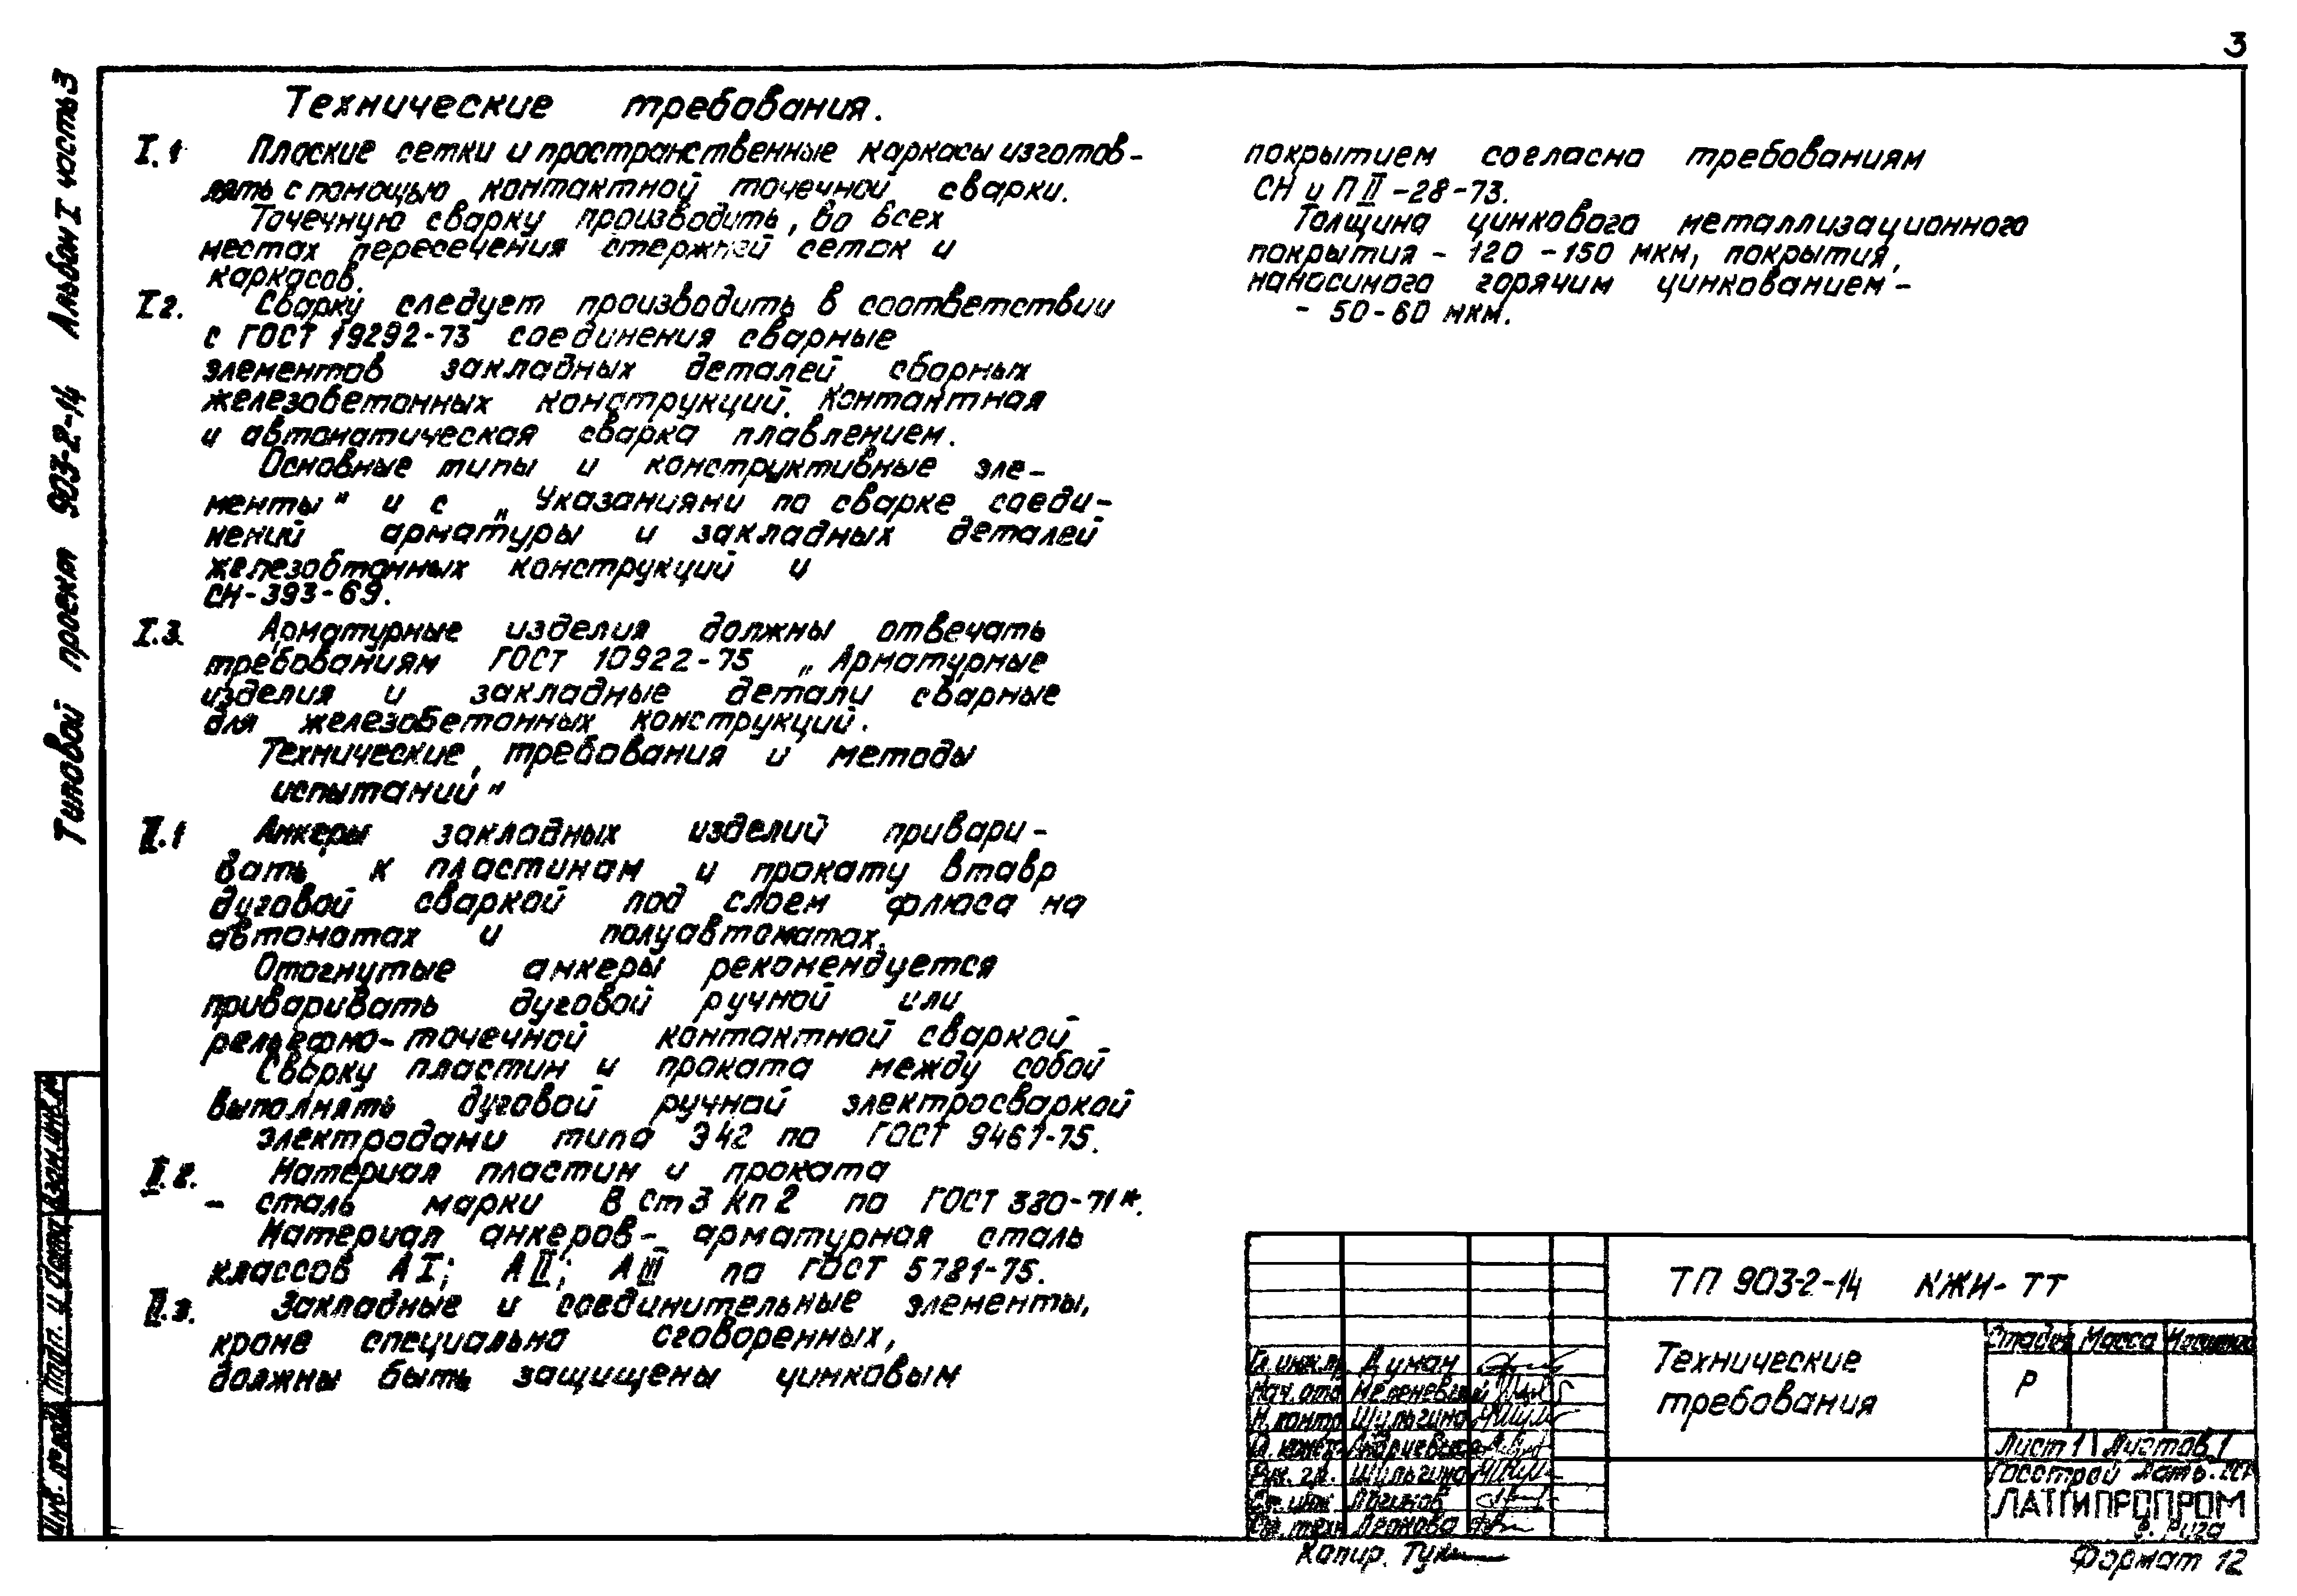 3
Типовой проект 903-2-14 Альбом I часть 3
Технические требования.
I.1 Плоские сетки и пространственные каркасы изготов-
лять с помощью контактной точечной сварки.
Точечную сварку производить, во всех
местах пересечения стержней сеток и
каркасов.
I.2. Сварку следует производить в соответствии
с ГОСТ 19292-73 соединения сварные
элементов закладных деталей сборных
железобетонных конструкций. Контактная
и автоматическая сварка плавлением.
Основные типы и конструктивные эле-
менты" и с „Указаниями по сварке соеди-
нений арматуры и закладных деталей
железобтонных конструкций и
СН-393-69.
I.3. Арматурные изделия должны отвечать
требованиям ГОСТ 10922-75 „Арматурные
изделия и закладные детали сварные
для железобетонных конструкций.
Технические требования и методы
испытаний"
II.1 Анкеры закладных изделий привари-
вать к пластинам и прокату втавр
дуговой сваркой под слоем флюса на
автоматах и полуавтоматах.
Отогнутые анкеры рекомендуется
приваривать дуговой ручной или
рельефно-точечной контактной сваркой
Сварку пластин и проката между собой
выполнять дуговой ручной электросваркой
электродами типа Э42 по ГОСТ 9467-75.
II.2. Материал пластин и проката
- сталь марки В Ст 3 кп 2 по ГОСТ 380-71*.
Материал анкеров- арматурная сталь
классов А I; А II; А III по ГОСТ 5781-75.
II.3. Закладные и соединительные элементы,
кроме специально сговоренных,
должны быть защищены цинковым
покрытием согласно требованиям
СН и П II -28-73.
Толщина цинкового металлизационного
покрытия - 120 -150 мкм, покрытия,
наносимого горячим цинкованием -
- 50-60 мкм.
Инв. № подл. Подп. и дата Взам. инв. №
ТП 903-2-14 КЖИ-ТТ
Технические
требования
Стадия Масса Масштаб
Р
Лист 1 Листов 1
Госстрой Латв. ССР
ЛАТГИПРОПРОМ
г. Рига
Гл. инж. пр. Думан
Нач. отд. Меленевский
Н. контр. Шульгина
Гл. конст. Андриевская
Рук. гр. Шульгина
Ст. инж. Логинов
Ст. техн. Леонова
Копир.
Формат 12